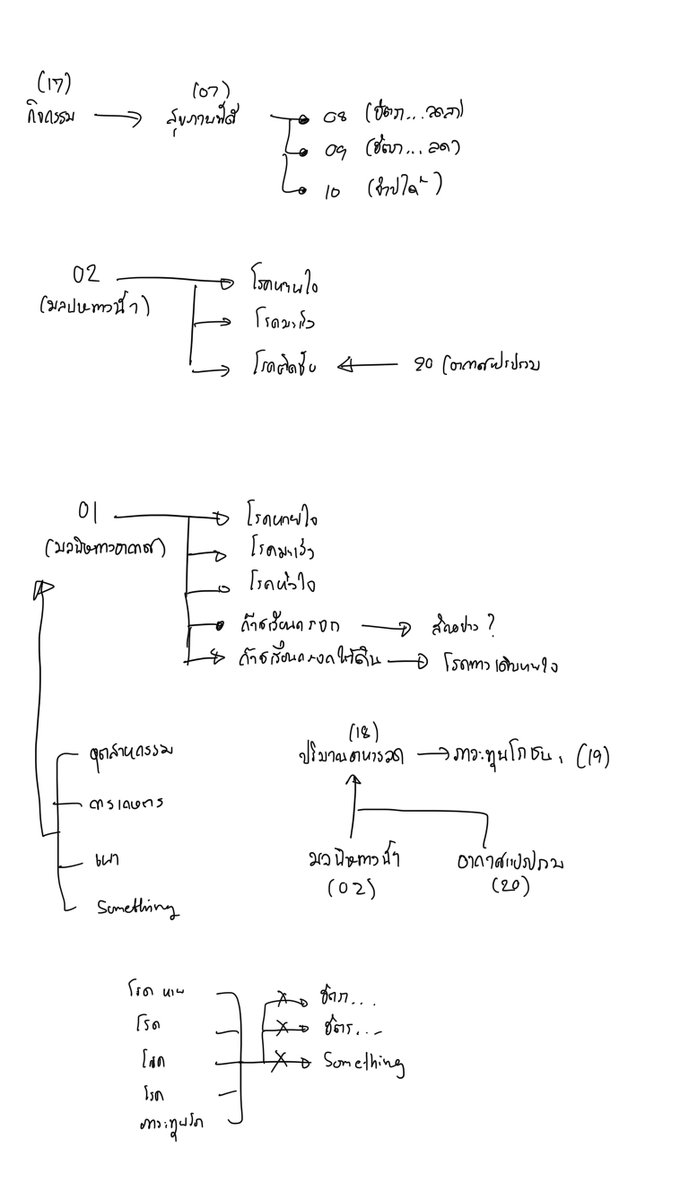 (17)
กิจกรรม
(07)
สุขภาพที่ดี
08 (อัตรา...ลดลง)
09 (อัตรา...ลด)
10
02
(มลพิษทางน้ำ)
โรคหายใจ
โรคมะเร็ง
โรคติดเชื้อ
20 (อากาศแปรปรวน
01
(มลพิษทางอากาศ)
โรคหายใจ
โรคมะเร็ง
โรคหัวใจ
ก๊าซเรือนกระจก
?
ก๊าซเรือนกระจก
โรคทางเดินหายใจ
อุตสาหกรรม
การเกษตร
เผา
Something
(18)
ปริมาณอาหารลด
ภาวะทุพโภชนา (19)
มลพิษทางน้ำ
(02)
อากาศแปรปรวน
(20)
โรค หาย
โรค
โรค
โรค
ภาวะทุพโภ
อัตรา...
อัตรา...
Something